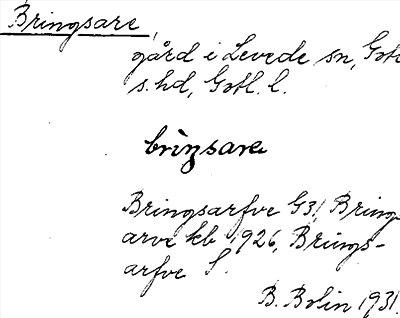 Bringsare,
gård i Levede sn, Gotl
s. hd, Gotl. l.
brìŋsarɐ
Bringsarfve G31, Brings
arve kb 1926, Brings-
arfve S.
B. Bolin 1931.